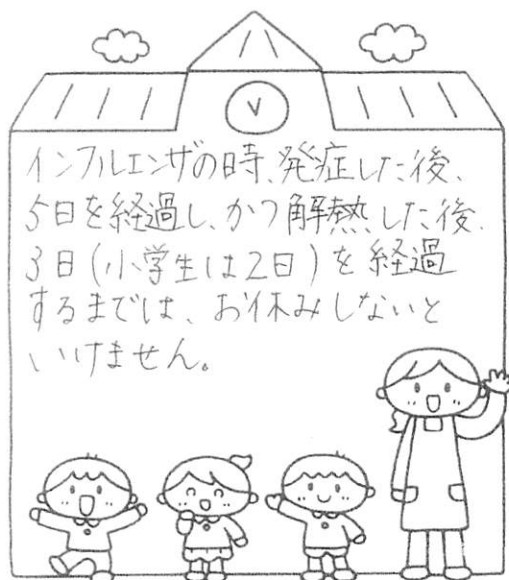 インフルエンザの時、発症した後、
5日を経過し、かつ解熱した後、
3日(小学生は2日)を経過
するまでは、お休みしないと
いけません。